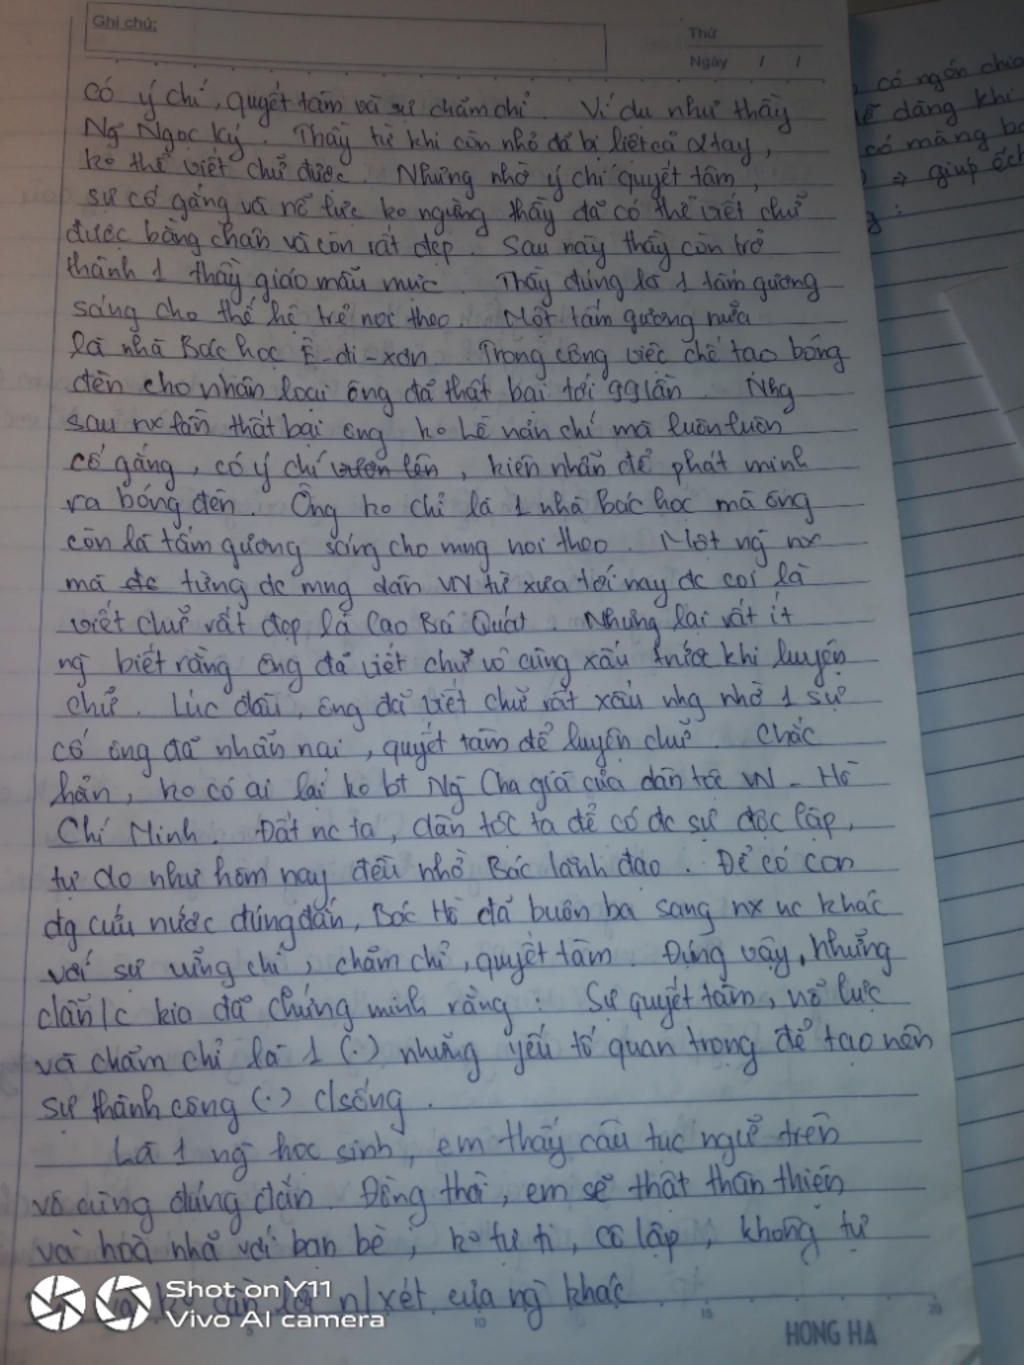 Ghi chú:
Thứ
Ngày / /
có ý chí, quyết tâm và sự chăm chỉ. Ví dụ như thầy
Ng Ngọc Ký. Thầy từ khi còn nhỏ đã bị liệt cả 2 tay,
ko thể viết chữ được. Nhưng nhờ ý chí quyết tâm,
sự cố gắng và nỗ lực ko ngừng thầy đã có thể viết chữ
được bằng chân và còn rất đẹp. Sau này thầy còn trở
thành 1 thầy giáo mẫu mực. Thầy đúng là 1 tấm gương
sáng cho thế hệ trẻ noi theo. Một tấm gương nữa
là nhà Bác học Ê-đi-xơn. Trong công việc chế tạo bóng
đèn cho nhân loại ông đã thất bại tới 99 lần. Nhg
sau nx lần thất bại ông ko hề nản chí mà luôn luôn
cố gắng, có ý chí vươn lên, kiên nhẫn để phát minh
ra bóng đèn. Ông ko chỉ là 1 nhà Bác học mà ông
còn là tấm gương sáng cho mng noi theo. Một ng nx
mà đc từng đc mng dân VN từ xưa tới nay đc coi là
viết chữ rất đẹp là Cao Bá Quát. Nhưng lại rất ít
ng biết rằng ông đã viết chữ vô cùng xấu trước khi luyện
chữ. Lúc đầu, ông đã viết chữ rất xấu nhg nhờ 1 sự
cố ông đã nhẫn nại, quyết tâm để luyện chữ. Chắc
hẳn, ko có ai lại ko bt Ng Cha già của dân tộc VN - Hồ
Chí Minh. Đất nc ta, dân tộc ta để có đc sự độc lập,
tự do như hôm nay đều nhờ Bác lãnh đạo. Để có con
đg cứu nước đúng đắn, Bác Hồ đã buôn ba sang nx nc khác
với sự ưng chí, chăm chỉ, quyết tâm. Đúng vậy, những
dẫn/c kia đã chứng minh rằng: Sự quyết tâm, nỗ lực
và chăm chỉ là 1 (.) những yếu tố quan trọng để tạo nên
sự thành công (.) c/sống.
Là 1 ng học sinh, em thấy câu tục ngữ trên
vô cùng đúng đắn. Đồng thời, em sẽ thật thân thiện
và hoà nhã với bạn bè, ko tự ti, cô lập, không tự
lời n/xét của ng khác
Shot on Y11
Vivo AI camera
10 15 20
HONG HA
có ngón
dàng khi
có màng
⇒ giúp ếch